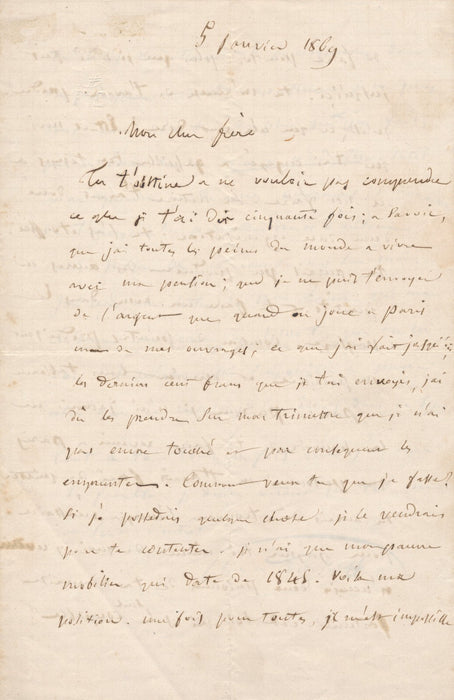 5 janvier 1869
Mon cher frère
Tu t'obstine a ne vouloir pas comprendre
ce que je t'ai dit cinquante fois ; a savoir,
que j'ai toutes les peines du monde a vivre
avec ma pention ; que je ne puis t'envoyer
de l'argent que quand on joue a Paris
un de mes ouvrages, ce que j'ai fait jusqu'ici ;
les derniers cent francs que je t'ai envoyés, j'ai
dû les prendre sur mon trimestre que je n'ai
pas encore touché et par consequent les
emprunter. Comment veux tu que je fasse ?
Si je possedais quelque chose, je le vendrais
pour te contenter. je n'ai que mon pauvre
mobilier qui date de 1848. Voila ma
position. une fois pour toutes, il m'est impossible